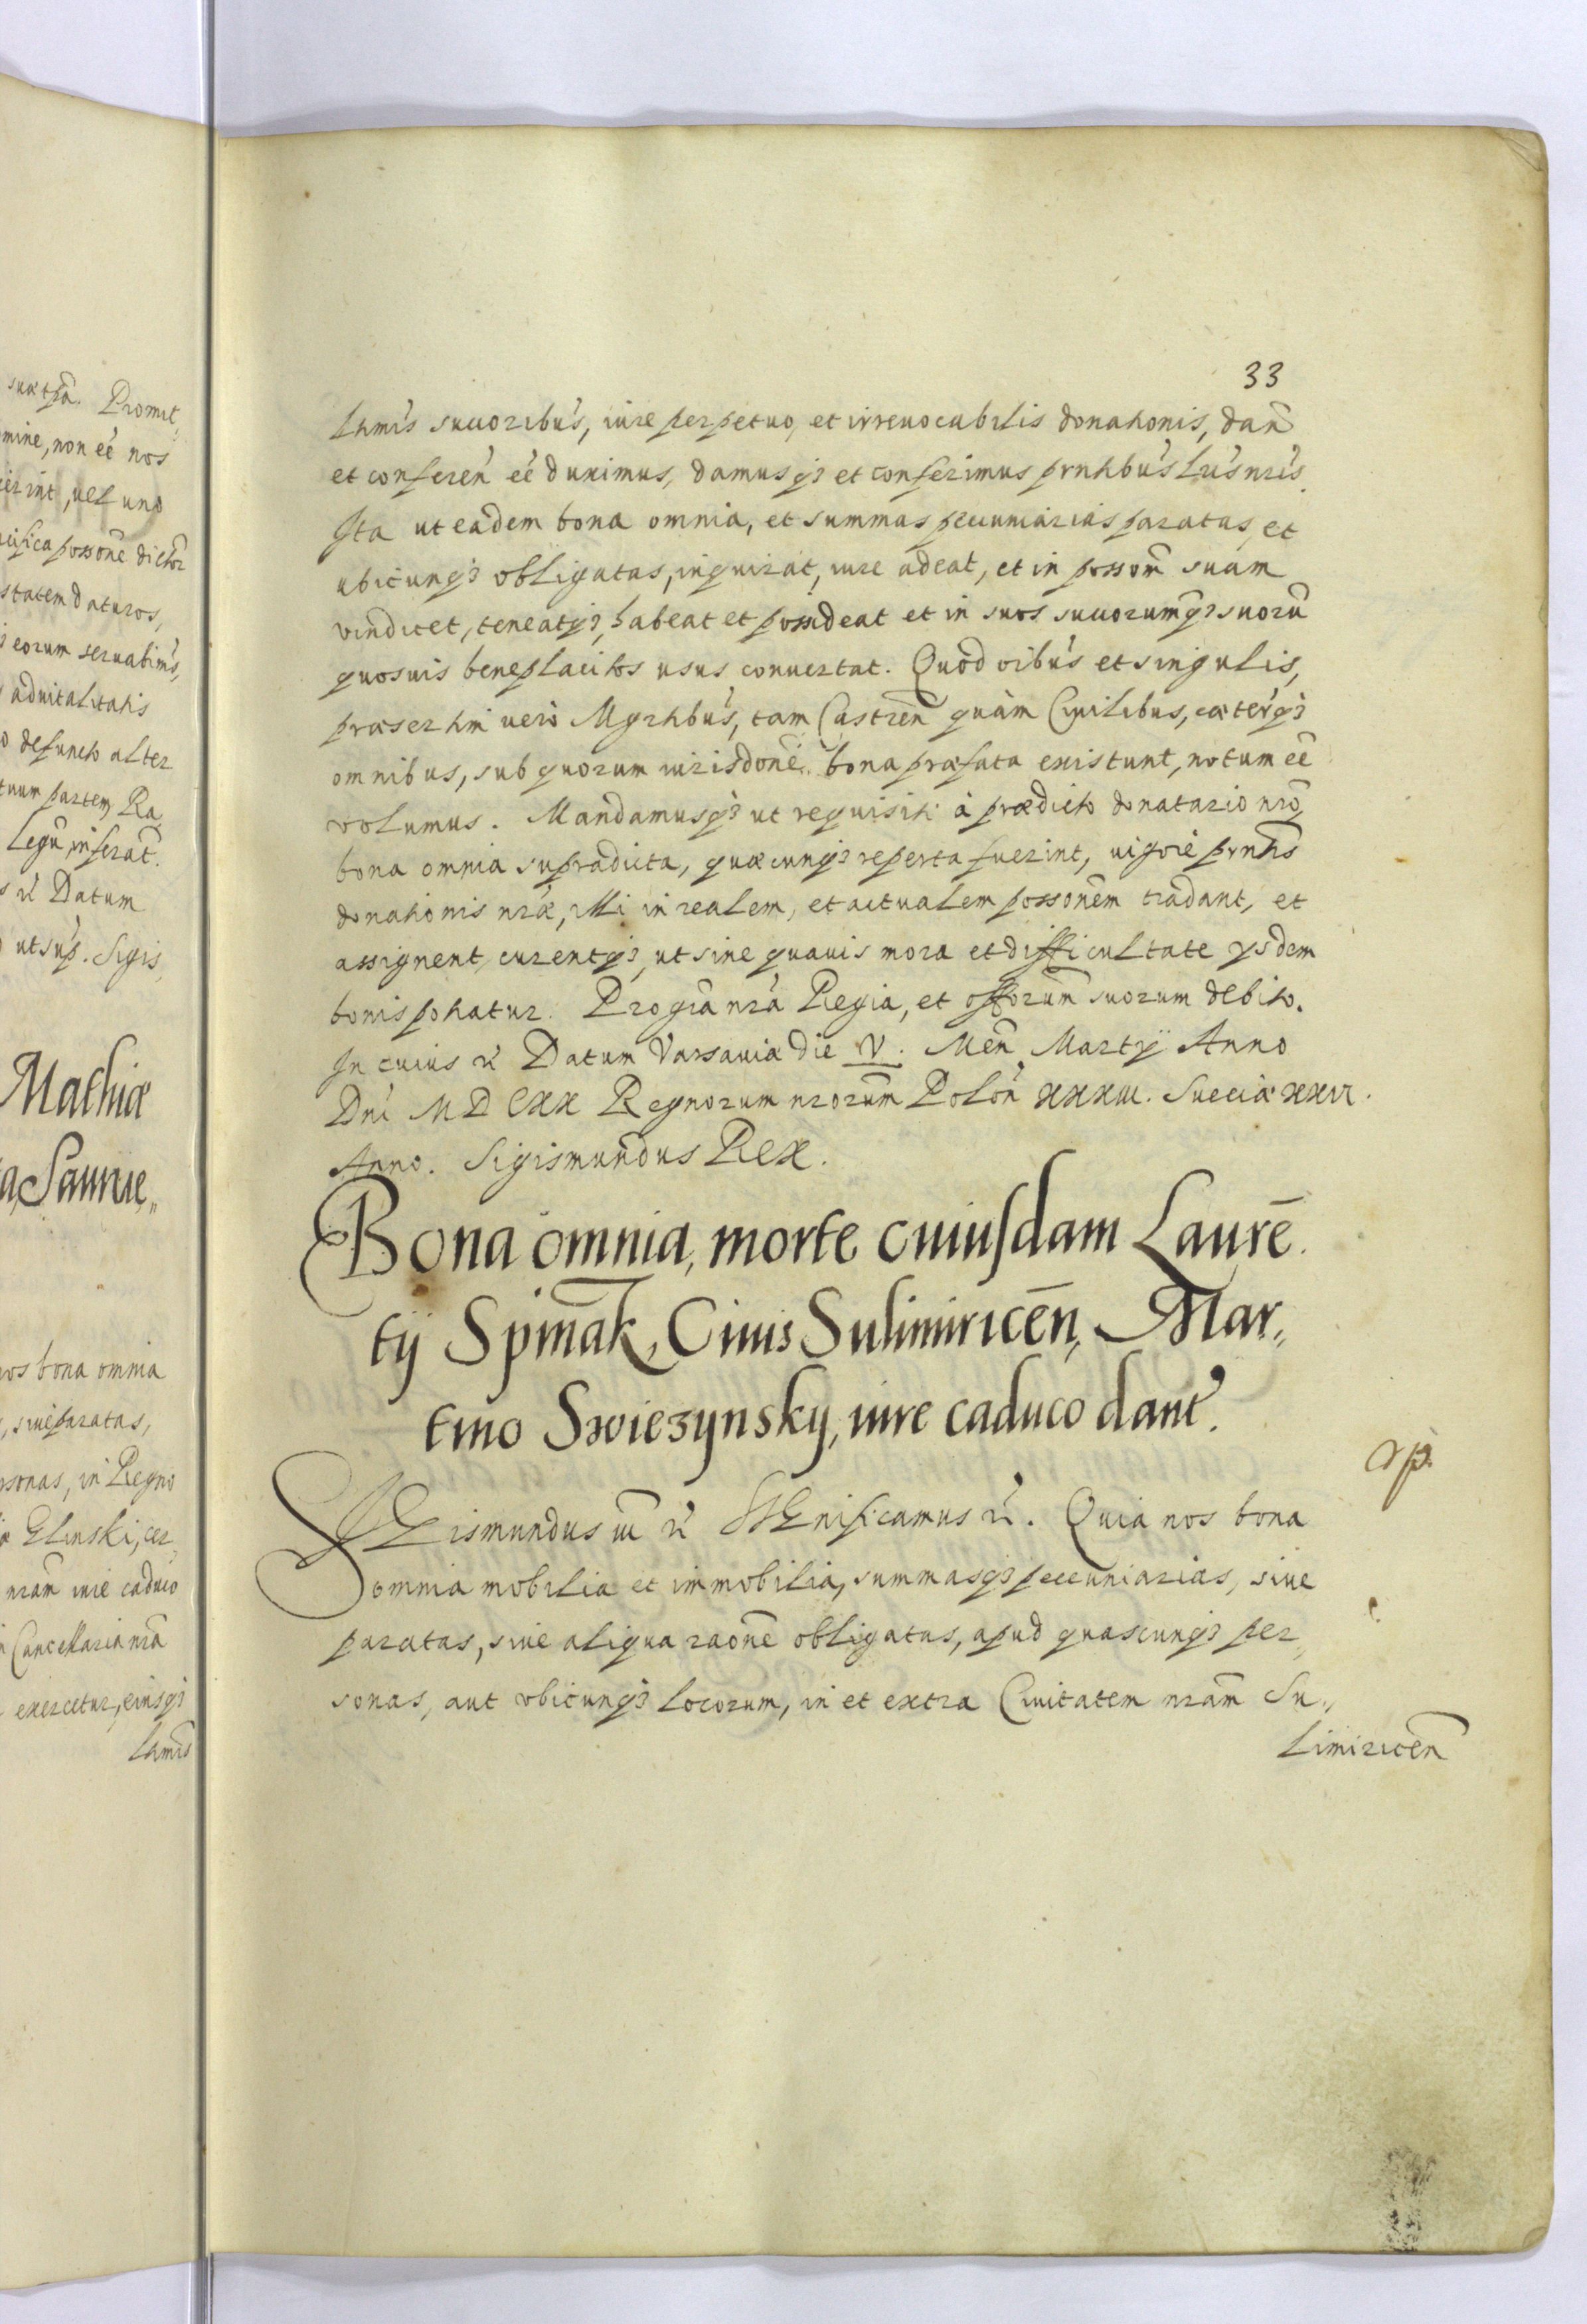 suæ tpã. Promit„
mine, non eé nos
erint, uel uno
cifica possone dictor
statem daturos,
eorum seruabim's,
aduitalitatis
defuncto alter
tuum partem Ra„
Legũ inserat.
Datum
ut sup. Sigis„
Mathiæ
Saunie„
nos bona omnia
, siue paratas,
rsonas, in Regno
Elinski, cer„
nram iure caduco
Cancellaria nra
exercetur, eiusq3
ltimis
33
ltimis succoribus, iure perpetuo, et irreuocabilis donationis, dañ
et conferen eé duximus, damusq3 et conferimus prntibus Lris nris.
Ita ut eadem bona omnia, et summas pecuniarias paratas, et
ubicunq3 obligatas, inquirat, iure adeat, et in possom suam
vindicet, teneatq3, habeat et possideat et in suos succorumq3 suorũ
quosuis beneplacitos usus conuertat. Quod oibus et singulis,
præsertim uero Mgrtibus, tam Castreñ quàm Ciuilibus, cæterisq3
omnibus, sub quorum iurisdone bona præfata existunt, notum eé
volumus. Mandamusq3 ut requisiti à prædicto donatario nro,
bona omnia supradicta, quæcunq3 reperta fuerint, uigore prntis
donationis nræ, illi in realem, et actualem possonem tradant, et
assignent, curentq3, ut sine quauis mora et difficultate ysdem
bonis potiatur. Pro gra nra Regia, et offorum suorum debito.
In cuius rei Datum Varsauiæ die V. Meñ Martij Anno
Dni MDCXX Regnorum nrorum Poloñ XXXIII. Sueciæ XXVI.
Anno. Sigismundus Rex.
Bona omnia, morte cuiusdam Laurẽ
tij Spinak, Ciuis Sulimiriceñ, Mar„
tino Swiezynsky, iure caduco dant'.
SIGismundus III SIGnificamus. Quia nos bona
omnia mobilia et immobilia, summasq3 pecuniarias, siue
paratas, siue aliqua raone obligatas, apud quascunq3 per„
sonas, aut vbicunq3 locorum, in et extra Ciuitatem nram Su„
limiriceñ